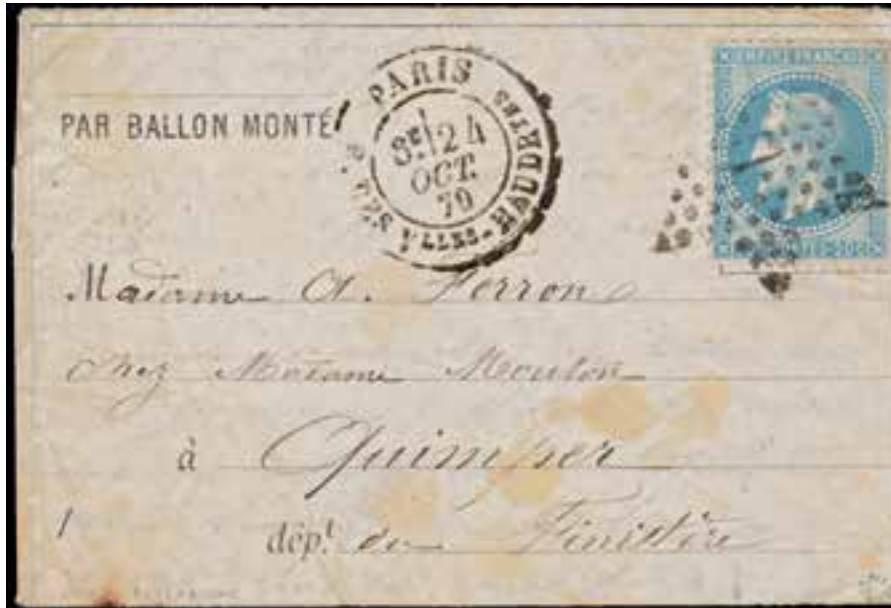 PAR BALLON MONTÉ
PARIS
8E/24
OCT.
70
R. DES Vlles-HAUDRTES
EMPIRE FRANC
Madame A. Ferron
chez Madame Moulon
à Quimper
dépt. du Finistère